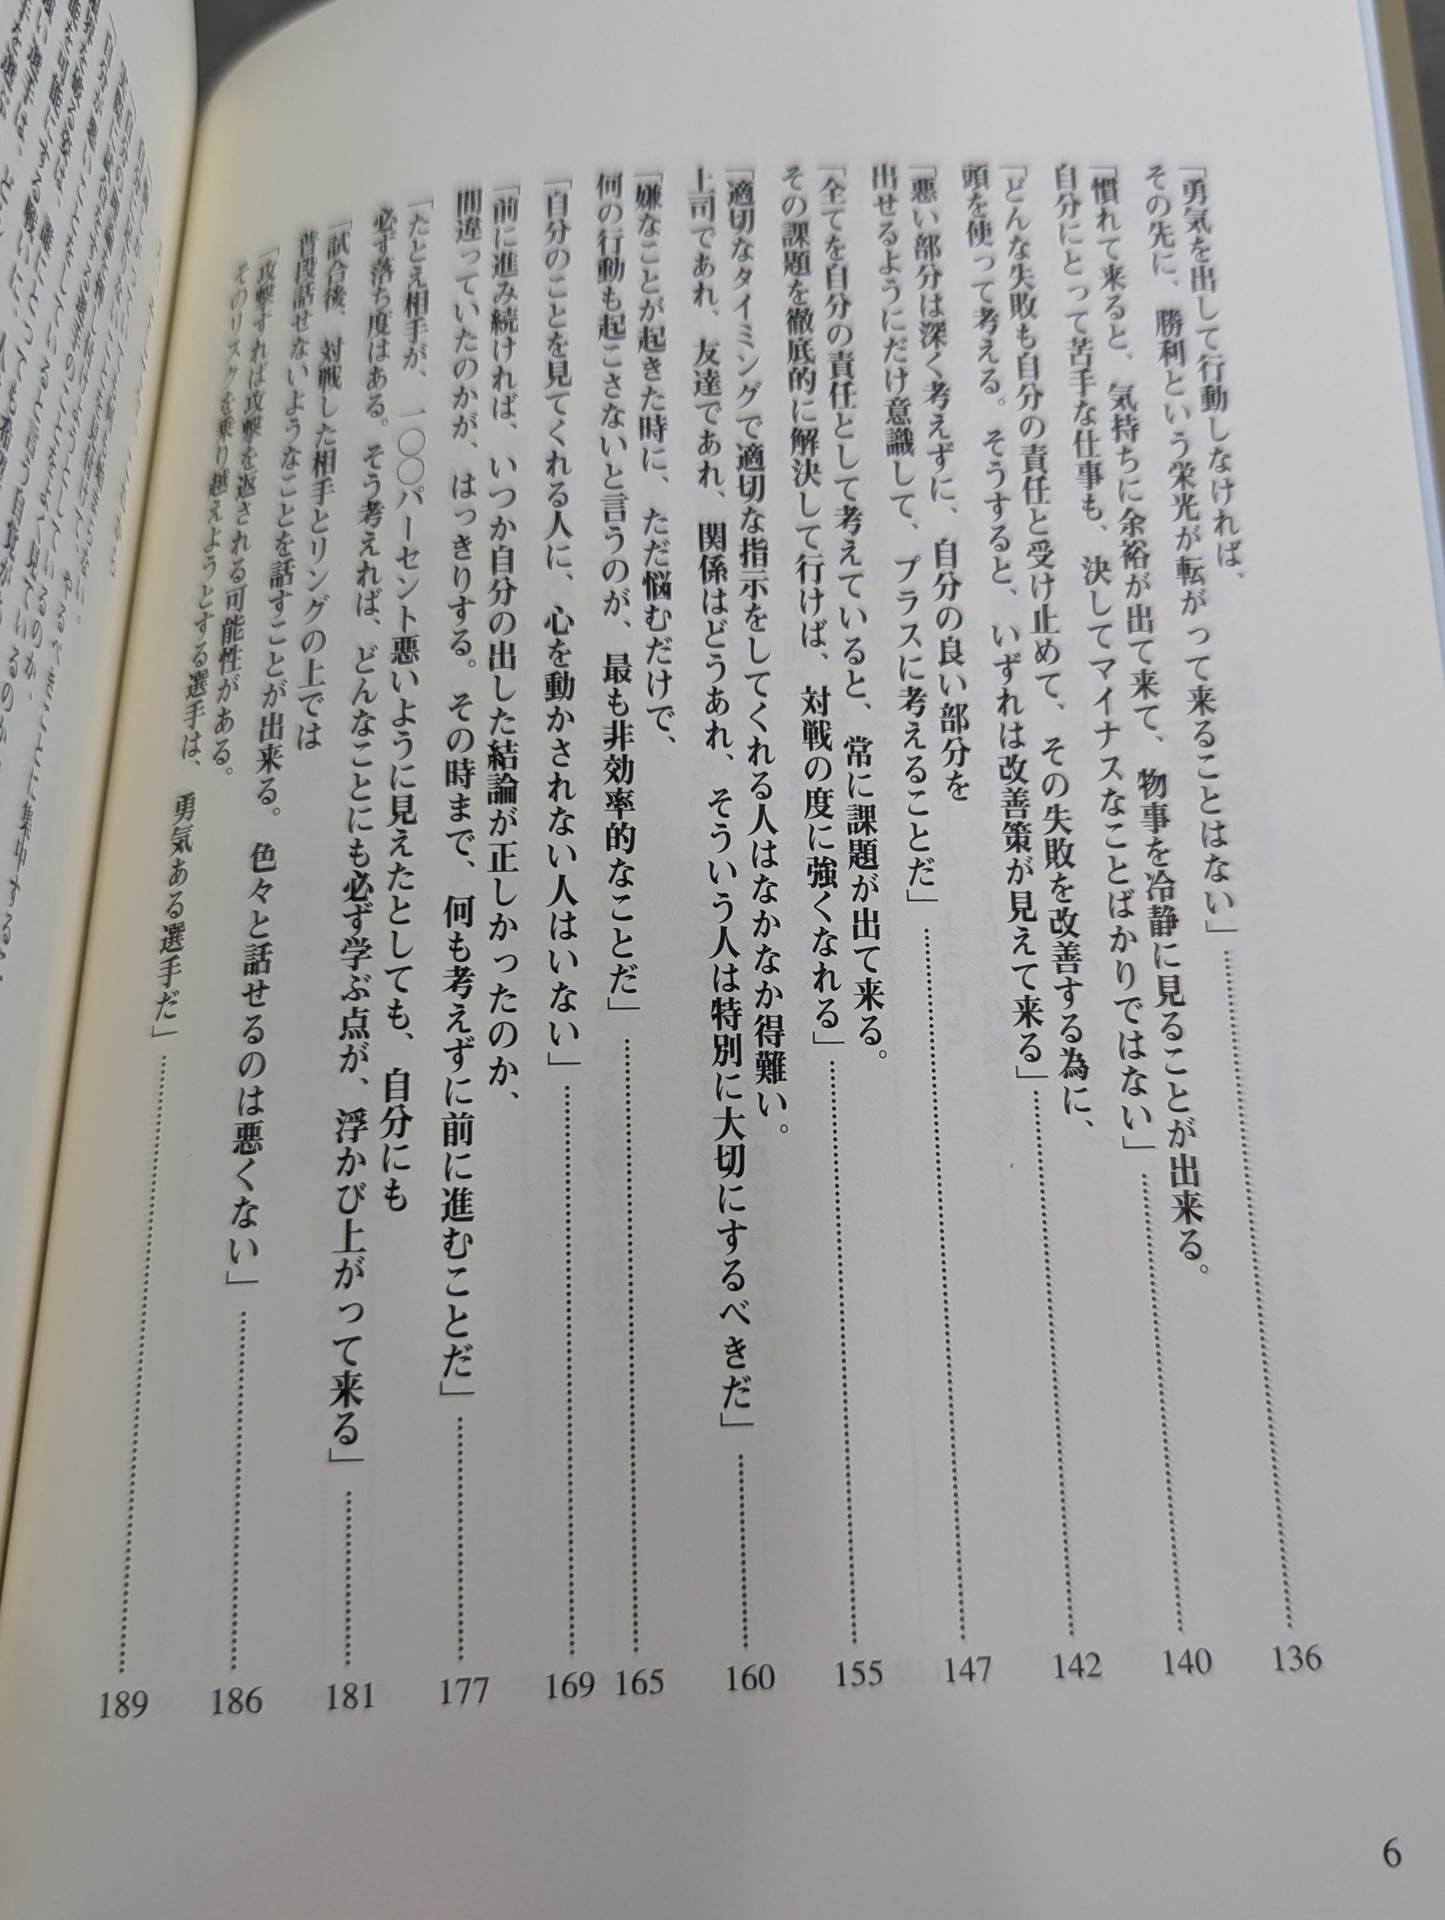 「勇気を出して行動しなければ、
その先に、勝利という栄光が転がって来ることはない」
136
「慣れて来ると、気持ちに余裕が出て来て、物事を冷静に見ることが出来る。
自分にとって苦手な仕事も、決してマイナスなことばかりではない」
140
「どんな失敗も自分の責任と受け止めて、その失敗を改善する為に、
頭を使って考える。そうすると、いずれは改善策が見えて来る」
142
「悪い部分は深く考えずに、自分の良い部分を
出せるようにだけ意識して、プラスに考えることだ」
147
「全てを自分の責任として考えていると、常に課題が出て来る。
その課題を徹底的に解決して行けば、対戦の度に強くなれる」
155
「適切なタイミングで適切な指示をしてくれる人はなかなか得難い。
上司であれ、友達であれ、関係はどうあれ、そういう人は特別に大切にするべきだ」
160
「嫌なことが起きた時に、ただ悩むだけで、
何の行動も起こさないと言うのが、最も非効率的なことだ」
165
「自分のことを見てくれる人に、心を動かされない人はいない」
169
「前に進み続ければ、いつか自分の出した結論が正しかったのか、
間違っていたのかが、はっきりする。その時まで、何も考えずに前に進むことだ」
177
「たとえ相手が、一〇〇パーセント悪いように見えたとしても、自分にも
必ず落ち度はある。そう考えれば、どんなことにも必ず学ぶ点が、浮かび上がって来る」
181
「試合後、対戦した相手とリングの上では
普段話せないようなことを話すことが出来る。色々と話せるのは悪くない」
186
「攻撃すれば攻撃を返される可能性がある。
そのリスクを乗り越えようとする選手は、勇気ある選手だ」
189
6